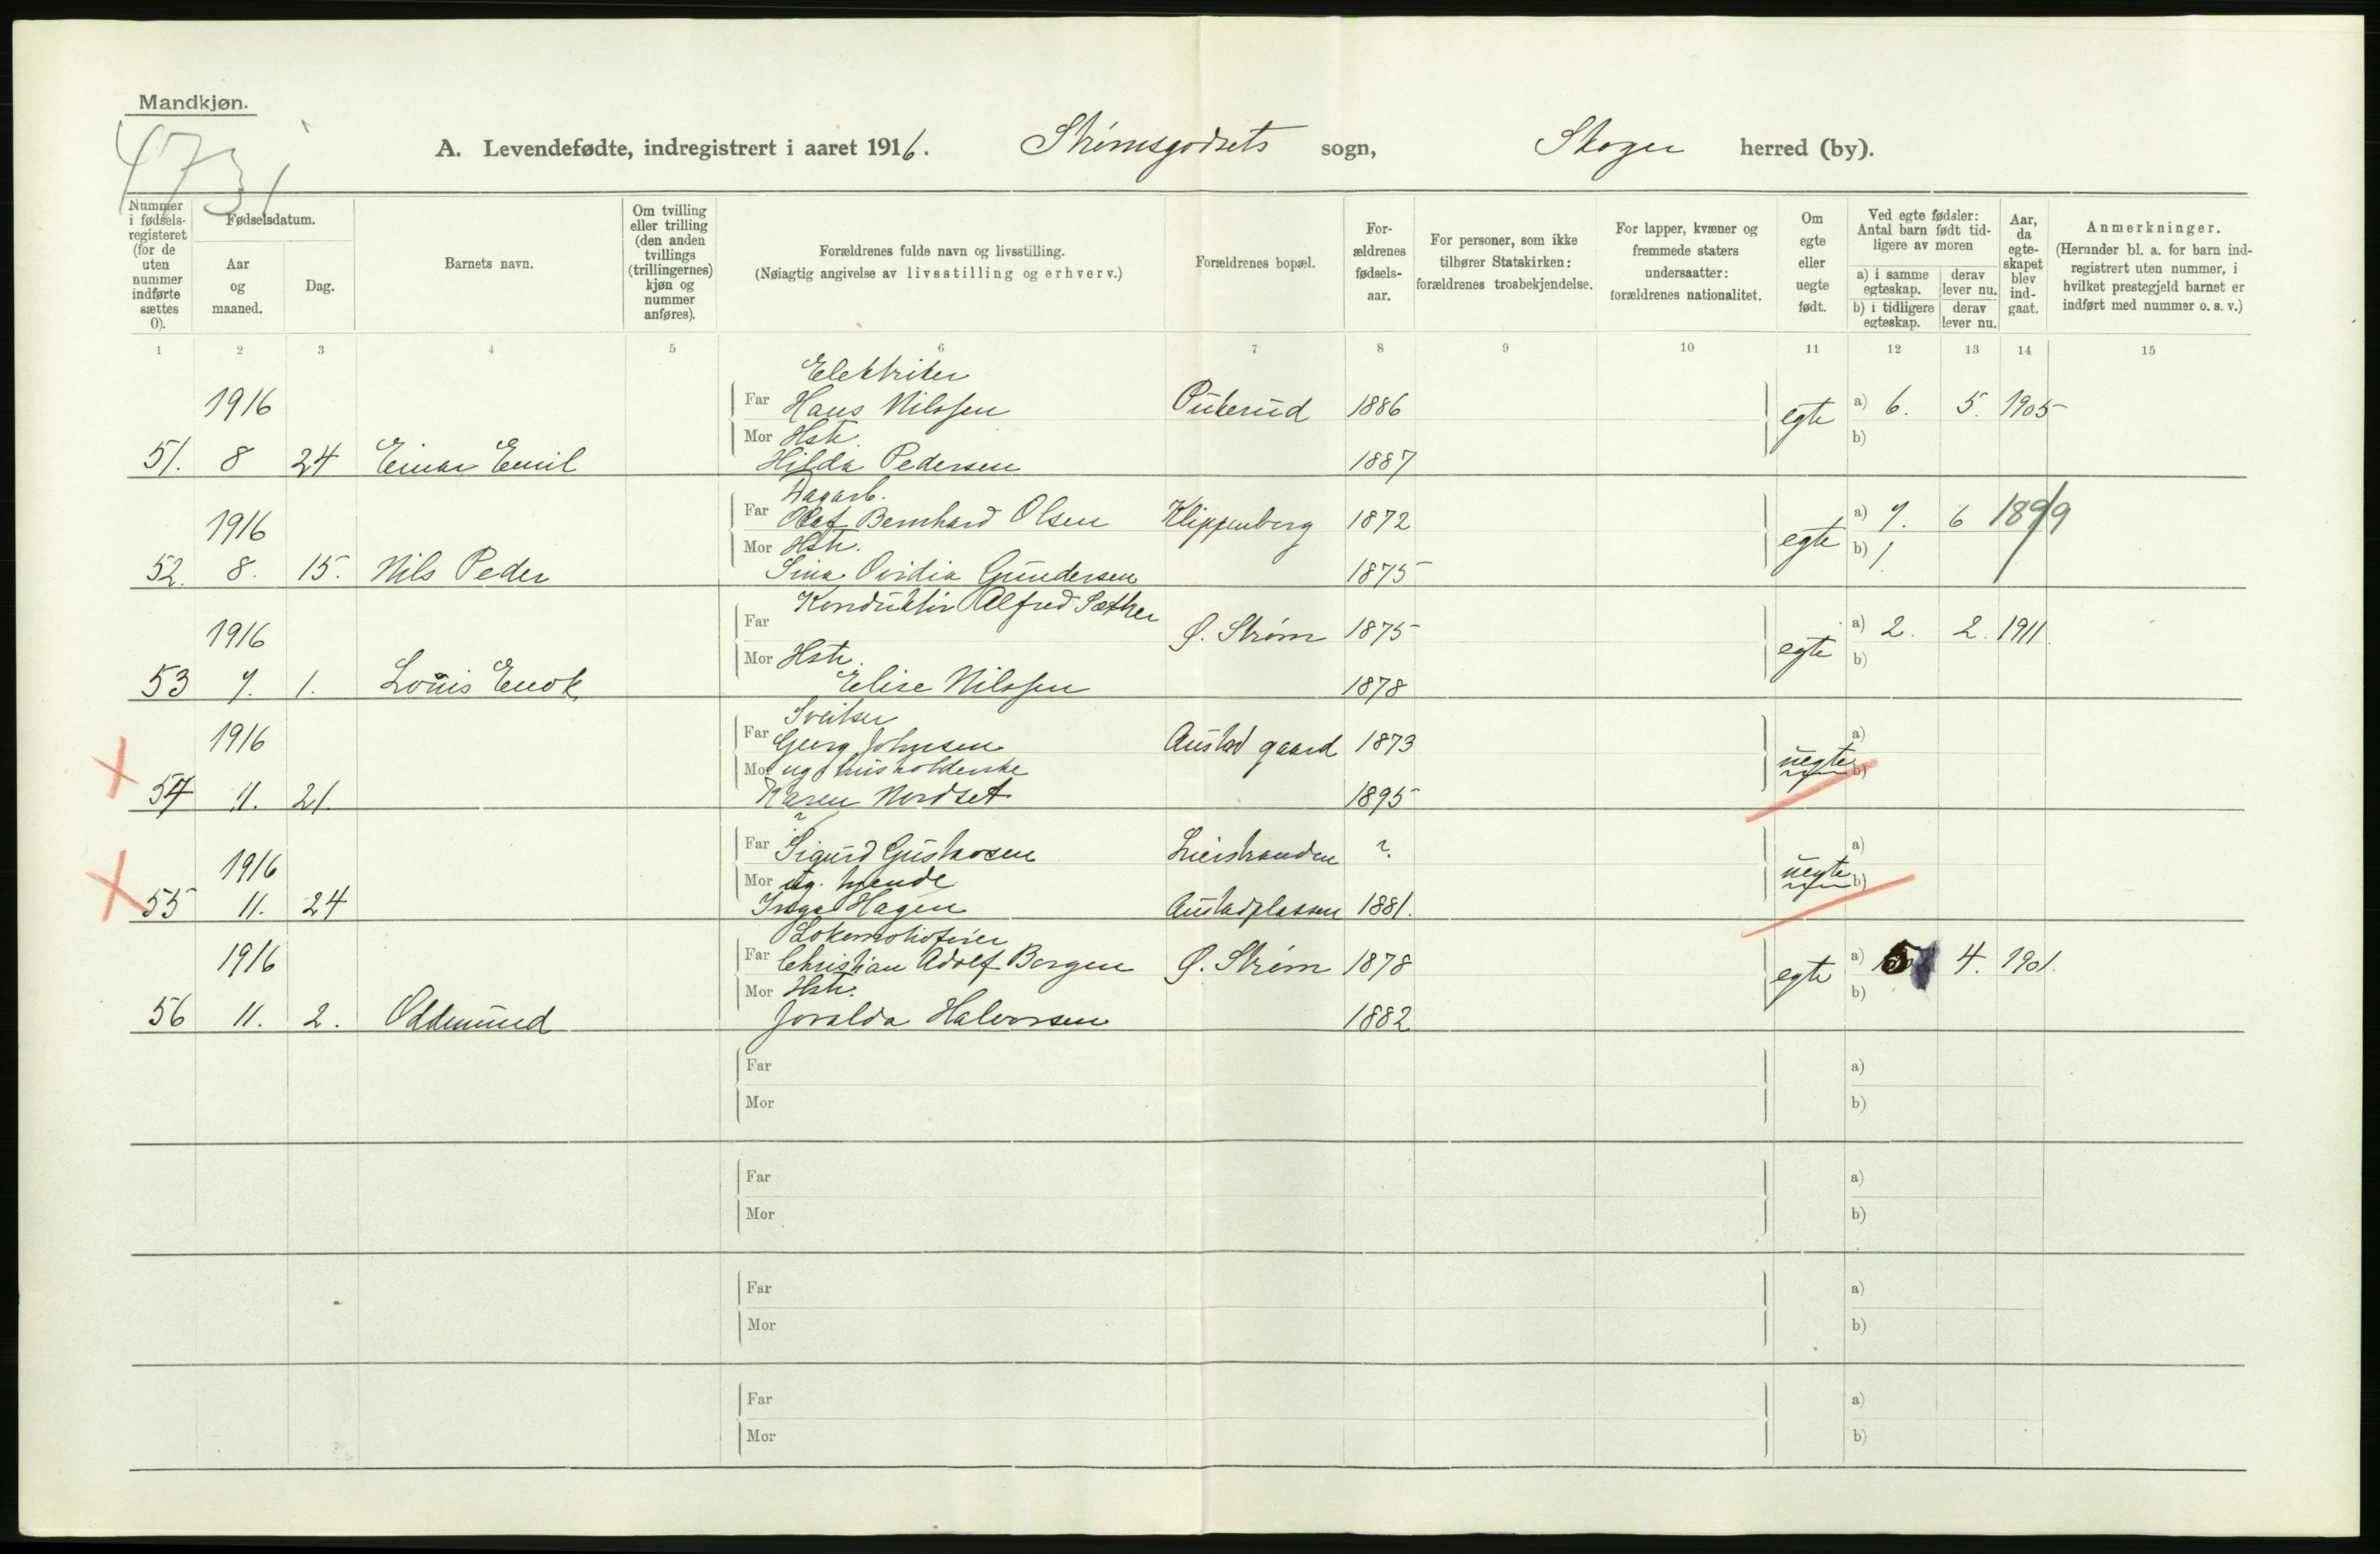 Mandkjøn.
A. Levendefødte, indregistrert i aaret 1916. Strømsgodsets sogn, Skoger herred (by).
Nummer i fødsels-registeret (for de uten nummer indførte sættes 0).
Fødselsdatum.
Aar og maaned.
Dag.
Barnets navn.
Om tvilling eller trilling (den anden tvillings (trillingernes) kjøn og nummer anføres).
Forældrenes fulde navn og livsstilling.
(Nøiagtig angivelse av livsstilling og erhverv.)
Forældrenes bopæl.
For-ældrenes fødsels-aar.
For personer, som ikke tilhører Statskirken: forældrenes trosbekjendelse.
For lapper, kvæner og fremmede staters undersaatter: forældrenes nationalitet.
Om egte eller uegte født.
Ved egte fødsler: Antal barn født tid-ligere av moren
a) i samme egteskap. derav lever nu.
b) i tidligere egteskap. derav lever nu.
Aar, da egte-skapet blev ind-gaat.
Anmerkninger.
(Herunder bl. a. for barn ind-registrert uten nummer, i hvilket prestegjeld barnet er indført med nummer o. s. v.)
1 2 3 4 5 6 7 8 9 10 11 12 13 14 15
Elektriker
1916 Far Hans Nilssen Pukerud 1886 egte a) 6. 5. 1905
Mor Hstr. b)
51. 8 24 Einar Emil Hilda Pedersen 1887
Dagarb.
1916 Far Olaf Bernhard Olsen Klippenberg 1872 egte a) 7. 6 1899
Mor Hstr. b) 1
52. 8. 15. Nils Peder Sina Ovidia Gundersen 1875
Konduktør Alfred Sæther
1916 Far Ø. Strøm 1875 egte a) 2. 2. 1911.
Mor Hstr. b)
53 7. 1. Louis Enok Elise Nilssen 1878
Sveitser
1916 Far Georg Johnsen Austad gaard 1873 uegte a)
Mor ug. husholderske b)
54 11. 21. Karen Nordset 1895
?
1916 Far Sigurd Gustavsen Lierstranden ? uegte a)
Mor ug. tjende b)
55 11. 24 Inga Hagen Austadplassen 1881.
Lokomotivfører
1916 Far Christian Adolf Borgen Ø. Strøm 1878 egte a) 5 4. 1901.
Mor Hstr. b)
56 11. 2. Oddmund Joralda Halvorsen 1882
Far a)
Mor b)
Far a)
Mor b)
Far a)
Mor b)
Far a)
Mor b)